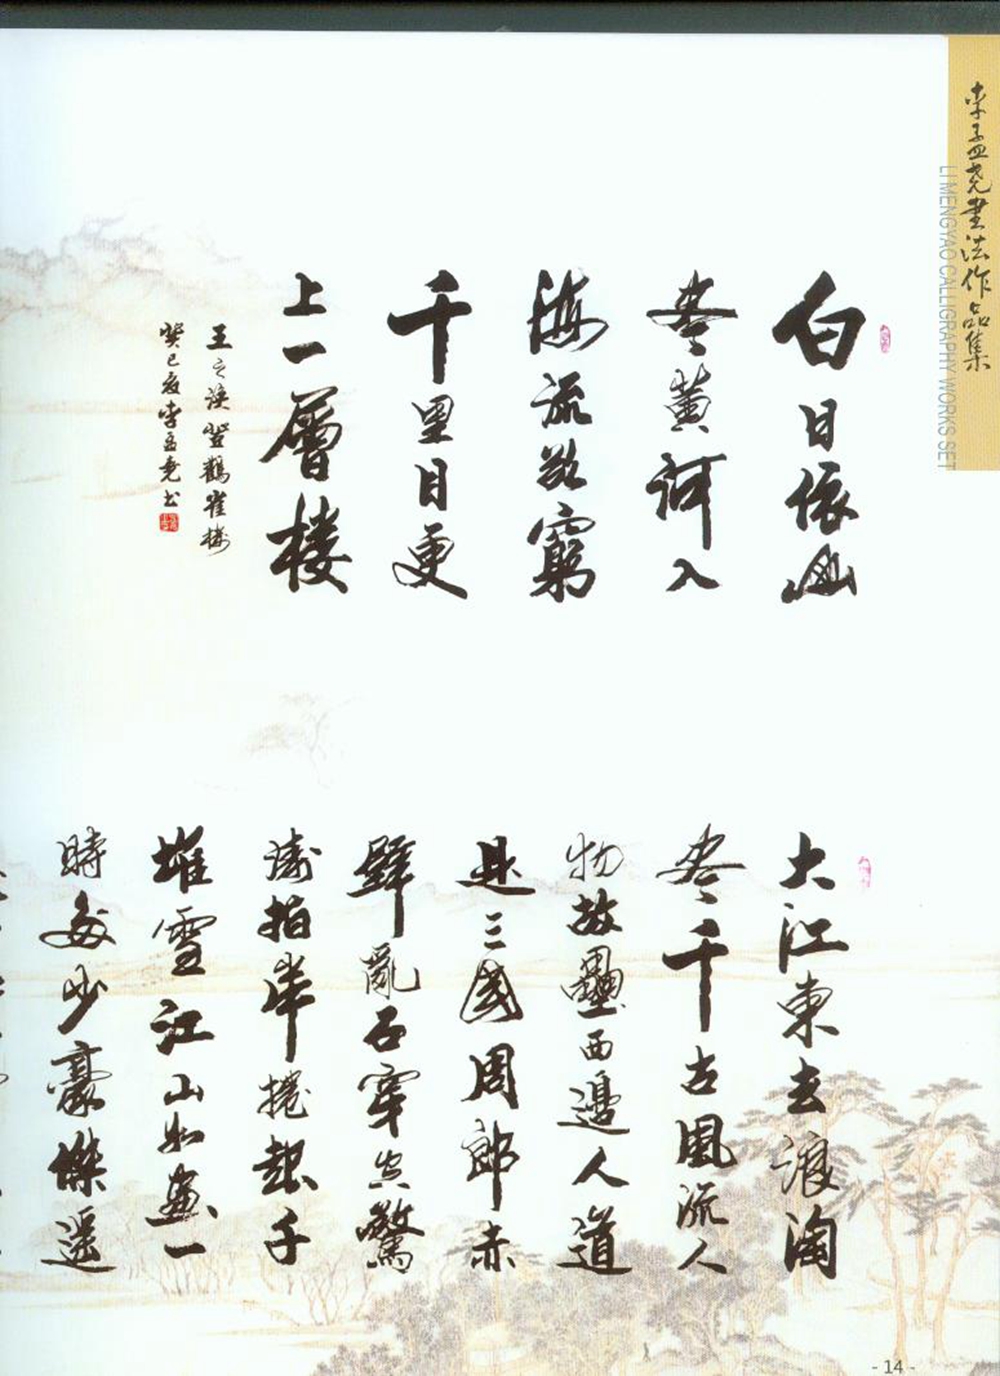 李孟尧書法作品集
LI MENGYAO CALLIGRAPHY WORKS SET
白日依山
尽黄河入
海流欲窮
千里目更
上一層楼
王之涣登鶴雀楼
癸巳夏李孟尧书
大江東去浪淘
尽千古風流人
物故壘西邊人道
是三國周郎赤
壁亂石穿空驚
濤拍岸捲起千
堆雪江山如畫一
時多少豪傑遥
- 14 -